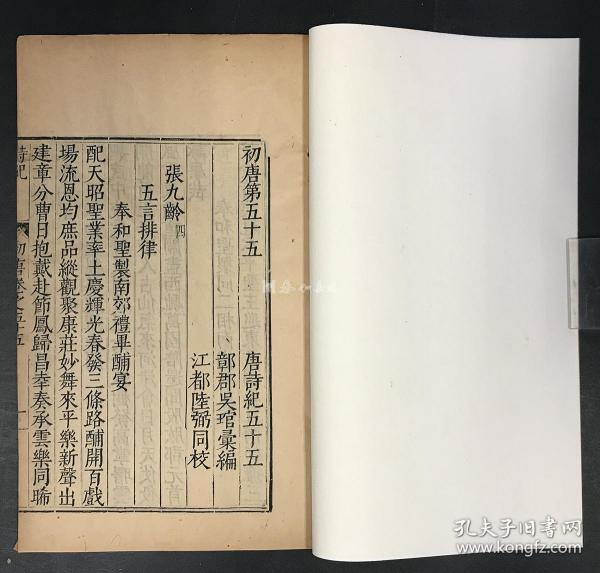 初唐第五十五　唐詩紀五十五
鄣郡吳琯彙編
江都陸弼同校
張九齡四
五言排律
奉和聖製南郊禮畢酺宴
配天昭聖業率土慶輝光春發三條路酺開百戲
場流恩均庶品縱觀聚康莊妙舞來平樂新聲出
建章分曹日抱戴赴節鳳歸昌幸奏承雲樂同晞
詩紀　初唐卷之五十五　一
孔夫子旧书网
www.kongfz.com